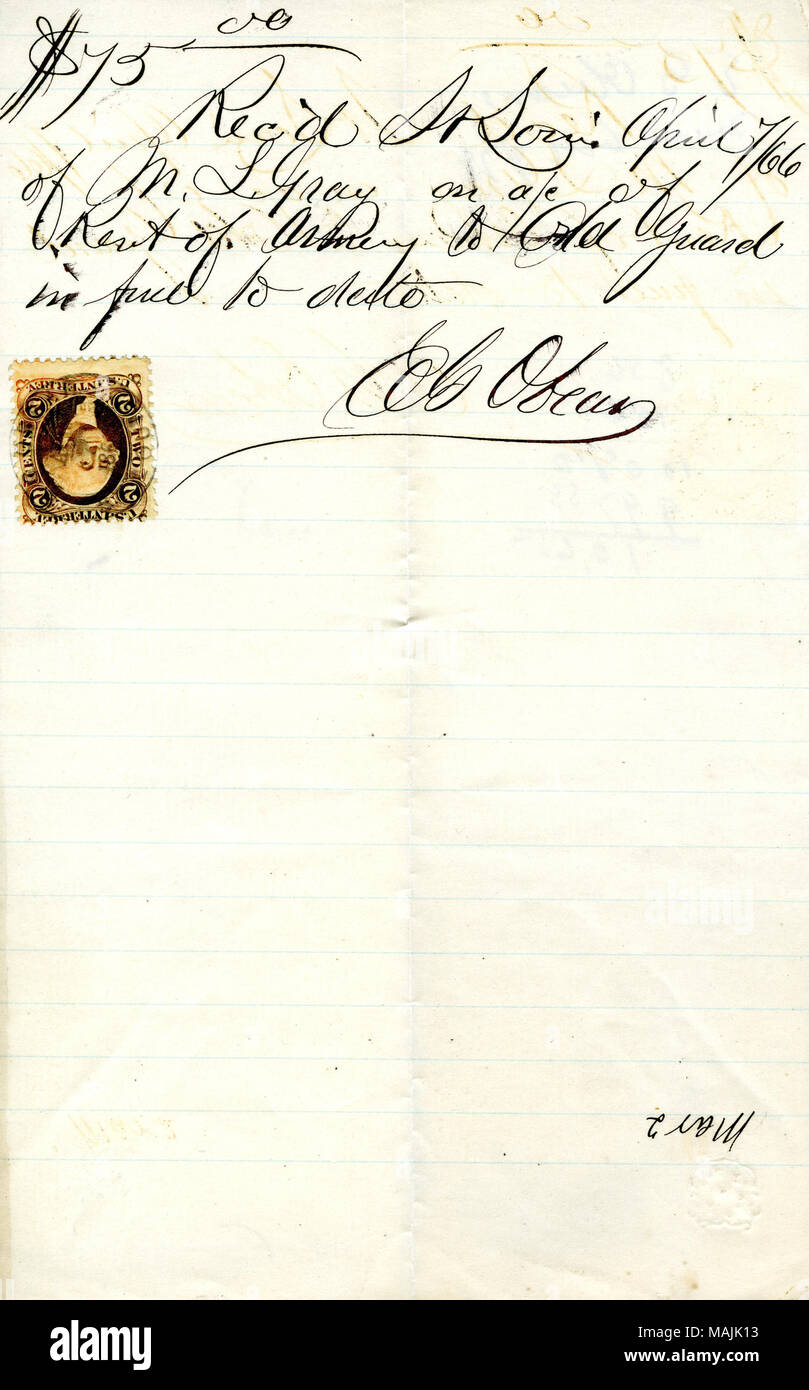 $75 00
Rec'd St Louis April 7/66
of M. L. Gray on a/c of
Rent of Armory to Old Guard
in full to date
E C Obear
U.S. INTER. REV.
2 2
CENTS TWO
2 2
U.S. INTER. REV.
Mar 2
alamy
alamy
alamy
Image ID: MAJK13
www.alamy.com